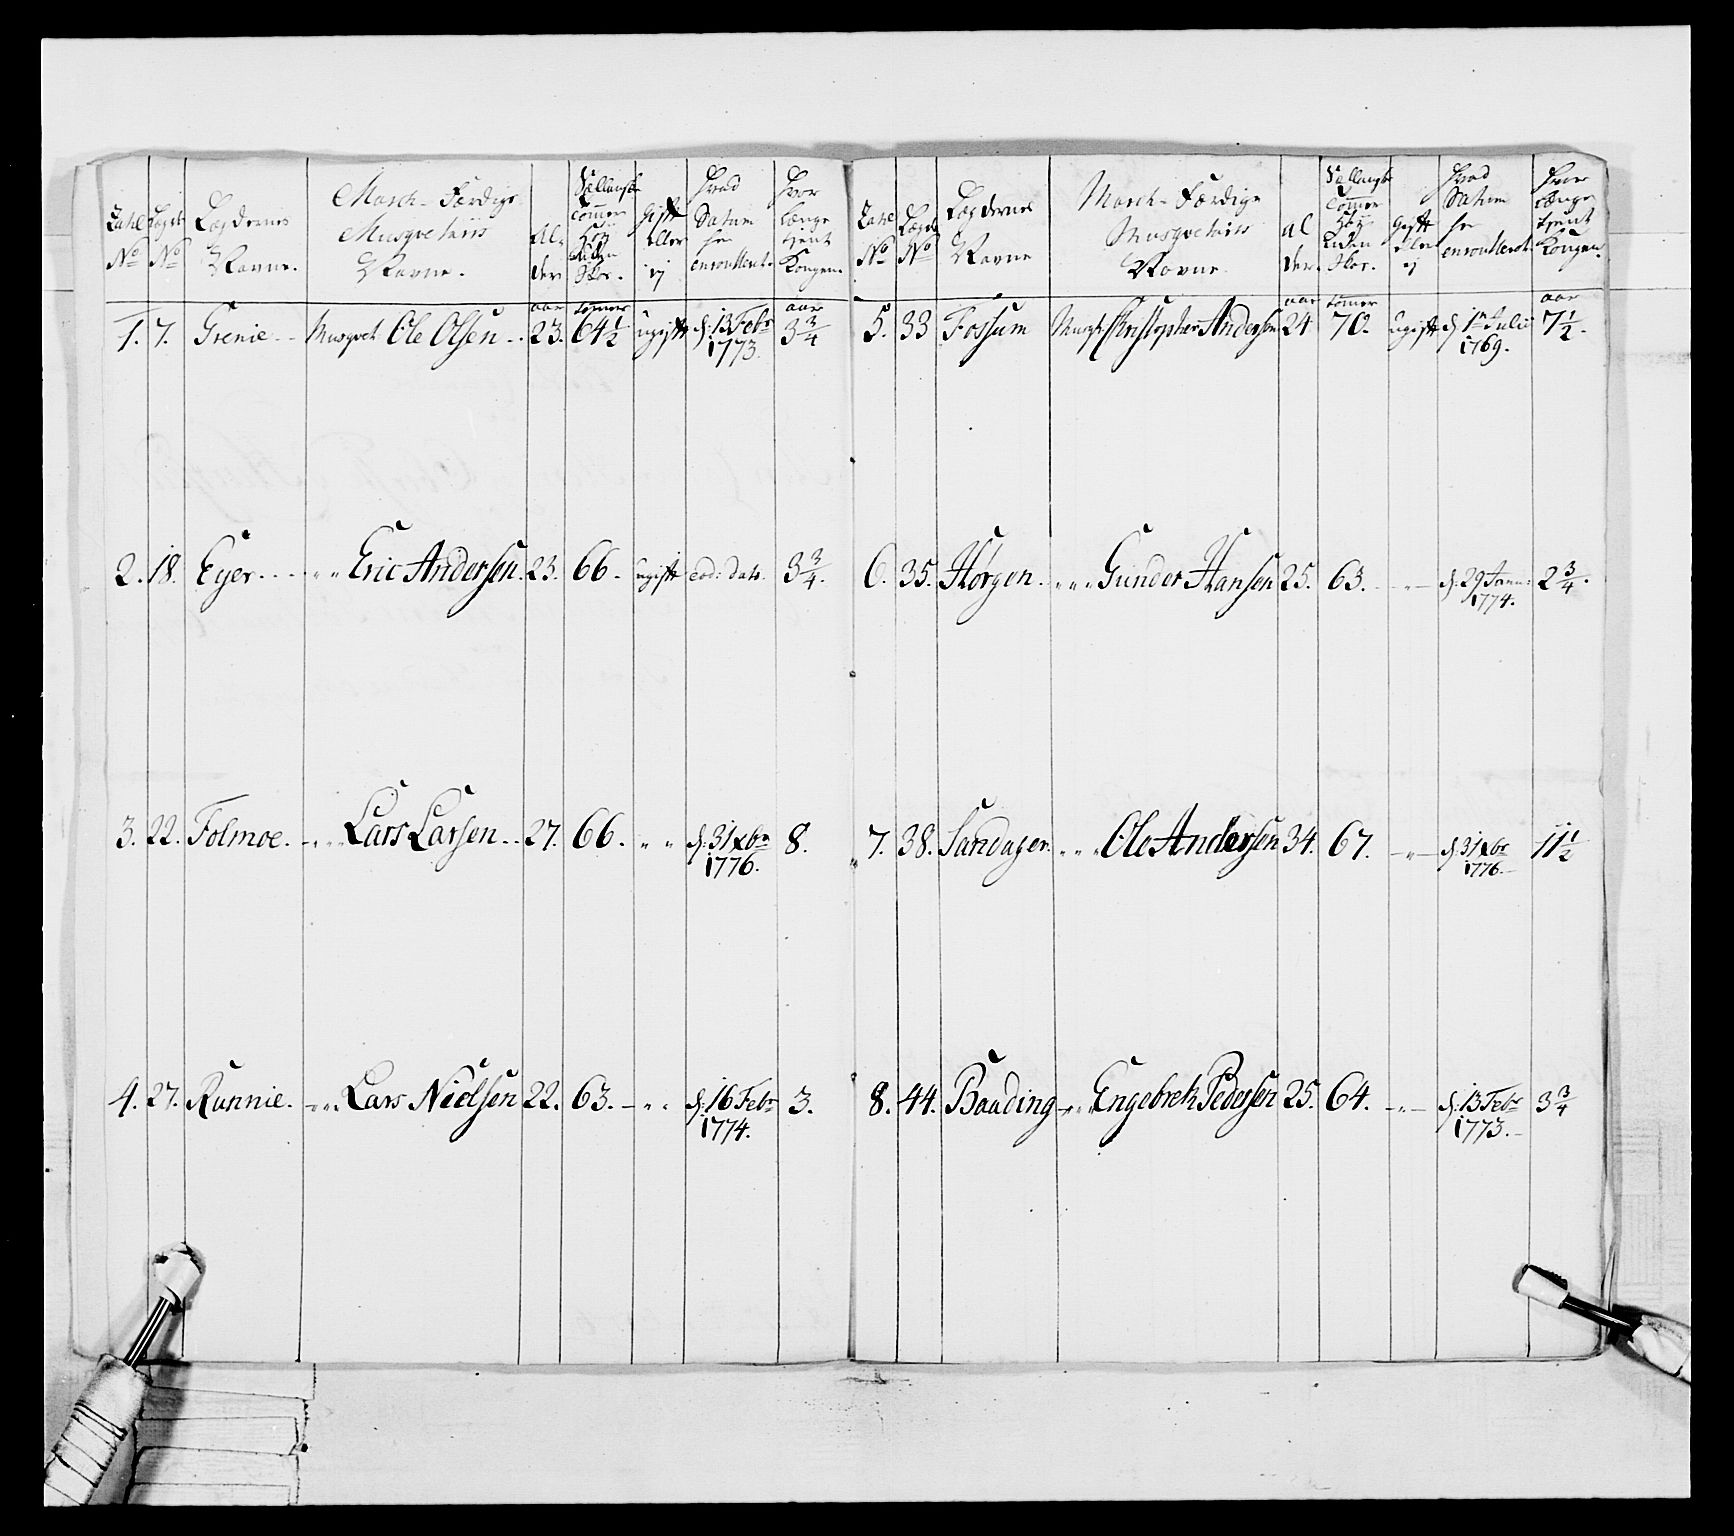 Zahl No
Lægds No
Lægdernes Navne.
March-Færdige Musqvetairs Navne.
Alder
Sællands Tommer Høy uden Skoe.
Gift eller ej
Hvad Datum hr enroulleret.
Hvor længe tjent Kongen.
aar tommer aar
1. 7. Grenie.. Musqvet Ole Olsen.. 23. 64½ ugift d: 13 Febr 1773. 3¾
2. 18. Eyer.... " " Eric Andersen. 23. 66. ugift eod: dato. 3¾.
3. 22. Folmoe. " " Lars Larsen.. 27. 66. " " d: 31 xbr 1776. 8.
4. 27. Runnie. " " Lars Nielsen 22. 63. " " d: 16 Febr 1774. 3.
Zahl No
Lægds No
Lægdernes Navne
March-Færdige Musqvetairs Navne.
Alder.
Sællands Tommer Høy uden Skoe.
Gift eller ej
Hvad Datum hr enroulleret
Hvor længe tjent Kongen.
aar tomer aar
5. 33 Fossum Musqt Christopher Andersen 24 70. ugift d: 1n Julii 1769. 7½.
6. 35. Hørgen. " " Gunder Hansen 25. 63. " d: 29 Jann: 1774. 2¾.
7. 38. Sandager. " " Ole Andersen 34. 67. " d: 31 xbr 1776. 11½
8. 44. Baading " " Engebret Pedersen 25. 64. " d: 13 Febr 1773. 3¾